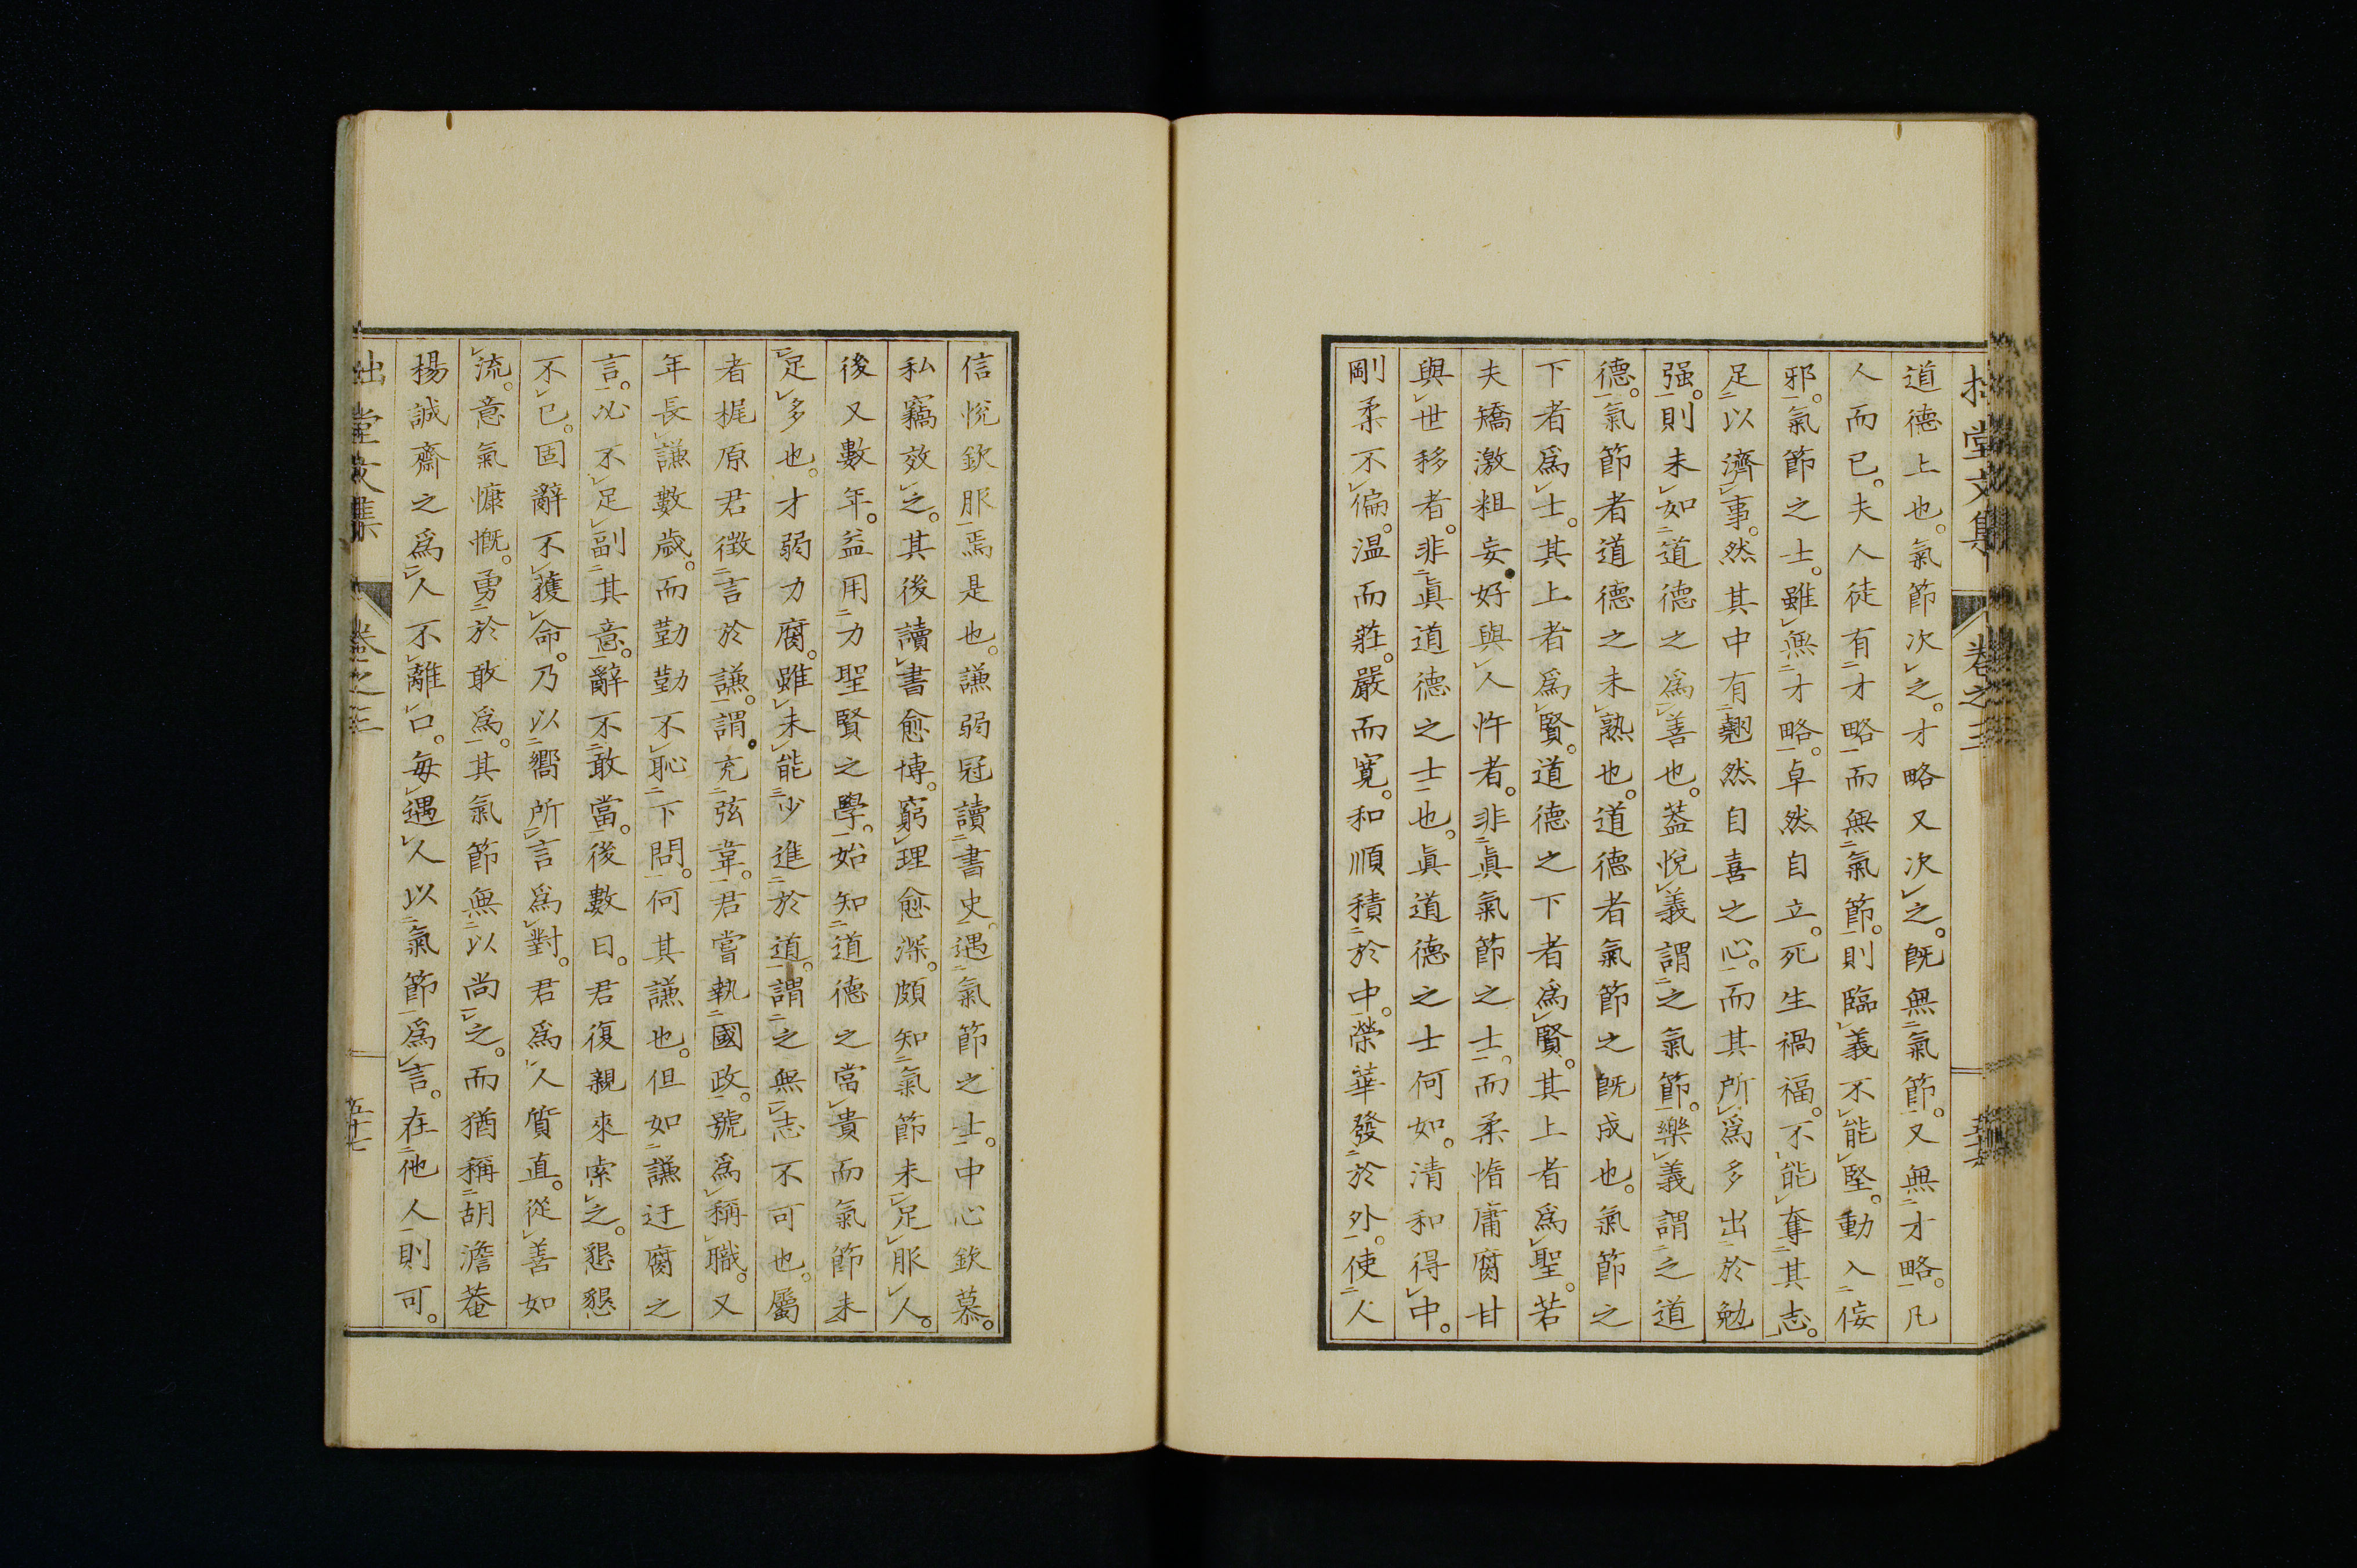 拙堂文集 卷之三
道德上也。氣節次之。才略又次之。既無氣節。又無才略。凡
人而已。夫人徒有才略而無氣節。則臨義不能堅。動入佞
邪。氣節之士。雖無才略。卓然自立。死生禍福。不能奪其志。
足以濟事。然其中有翹然自喜之心。而其所爲多出於勉
强。則未如道德之爲善也。蓋悅義謂之氣節。樂義謂之道
德。氣節者道德之未熟也。道德者氣節之既成也。氣節之
下者爲士。其上者爲賢。道德之下者爲賢。其上者爲聖。若
夫矯激粗妄好與人忤者。非眞氣節之士。而柔惰庸腐甘
與世移者。非眞道德之士也。眞道德之士何如。清和得中。
剛柔不偏。温而莊。嚴而寬。和順積於中。榮華發於外。使人
信悅欽服焉是也。謙弱冠讀書史。遇氣節之士。中心欽慕。
私竊效之。其後讀書愈博。窮理愈深。頗知氣節未足服人。
後又數年。益用力聖賢之學。始知道德之當貴而氣節未
足多也。才弱力腐。雖未能少進於道。謂之無志不可也。屬
者梶原君徵言於謙。謂充弦韋。君嘗執國政。號爲稱職。又
年長謙數歲。而勤勤不恥下問。何其謙也。但如謙迂腐之
言。必不足副其意。辭不敢當。後數日。君復親來索之。懇懇
不已。固辭不獲命。乃以嚮所言爲對。君爲人質直。從善如
流。意氣慷慨。勇於敢爲。其氣節無以尚之。而猶稱胡澹菴
楊誠齋之爲人不離口。每遇人以氣節爲言。在他人則可。
拙堂文集 卷之三 五十七